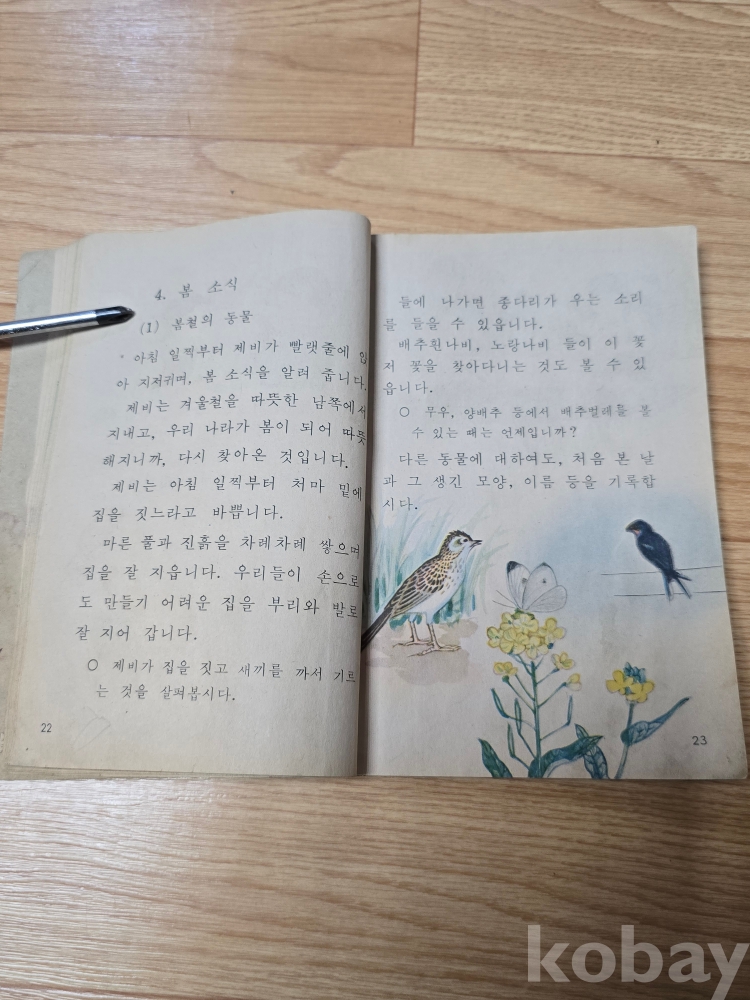 4. 봄 소식
(1) 봄철의 동물
아침 일찍부터 제비가 빨랫줄에 앉
아 지저귀며, 봄 소식을 알려 줍니다.
제비는 겨울철을 따뜻한 남쪽에서
지내고, 우리 나라가 봄이 되어 따뜻
해지니까, 다시 찾아온 것입니다.
제비는 아침 일찍부터 처마 밑에
집을 짓느라고 바쁩니다.
마른 풀과 진흙을 차례차례 쌓으며
집을 잘 지읍니다. 우리들이 손으로
도 만들기 어려운 집을 부리와 발로
잘 지어 갑니다.
○ 제비가 집을 짓고 새끼를 까서 기르
는 것을 살펴봅시다.
22
들에 나가면 종다리가 우는 소리
를 들을 수 있읍니다.
배추흰나비, 노랑나비 들이 이 꽃
저 꽃을 찾아다니는 것도 볼 수 있
읍니다.
○ 무우, 양배추 등에서 배추벌레를 볼
수 있는 때는 언제입니까?
다른 동물에 대하여도, 처음 본 날
과 그 생긴 모양, 이름 등을 기록합
시다.
23
kobay